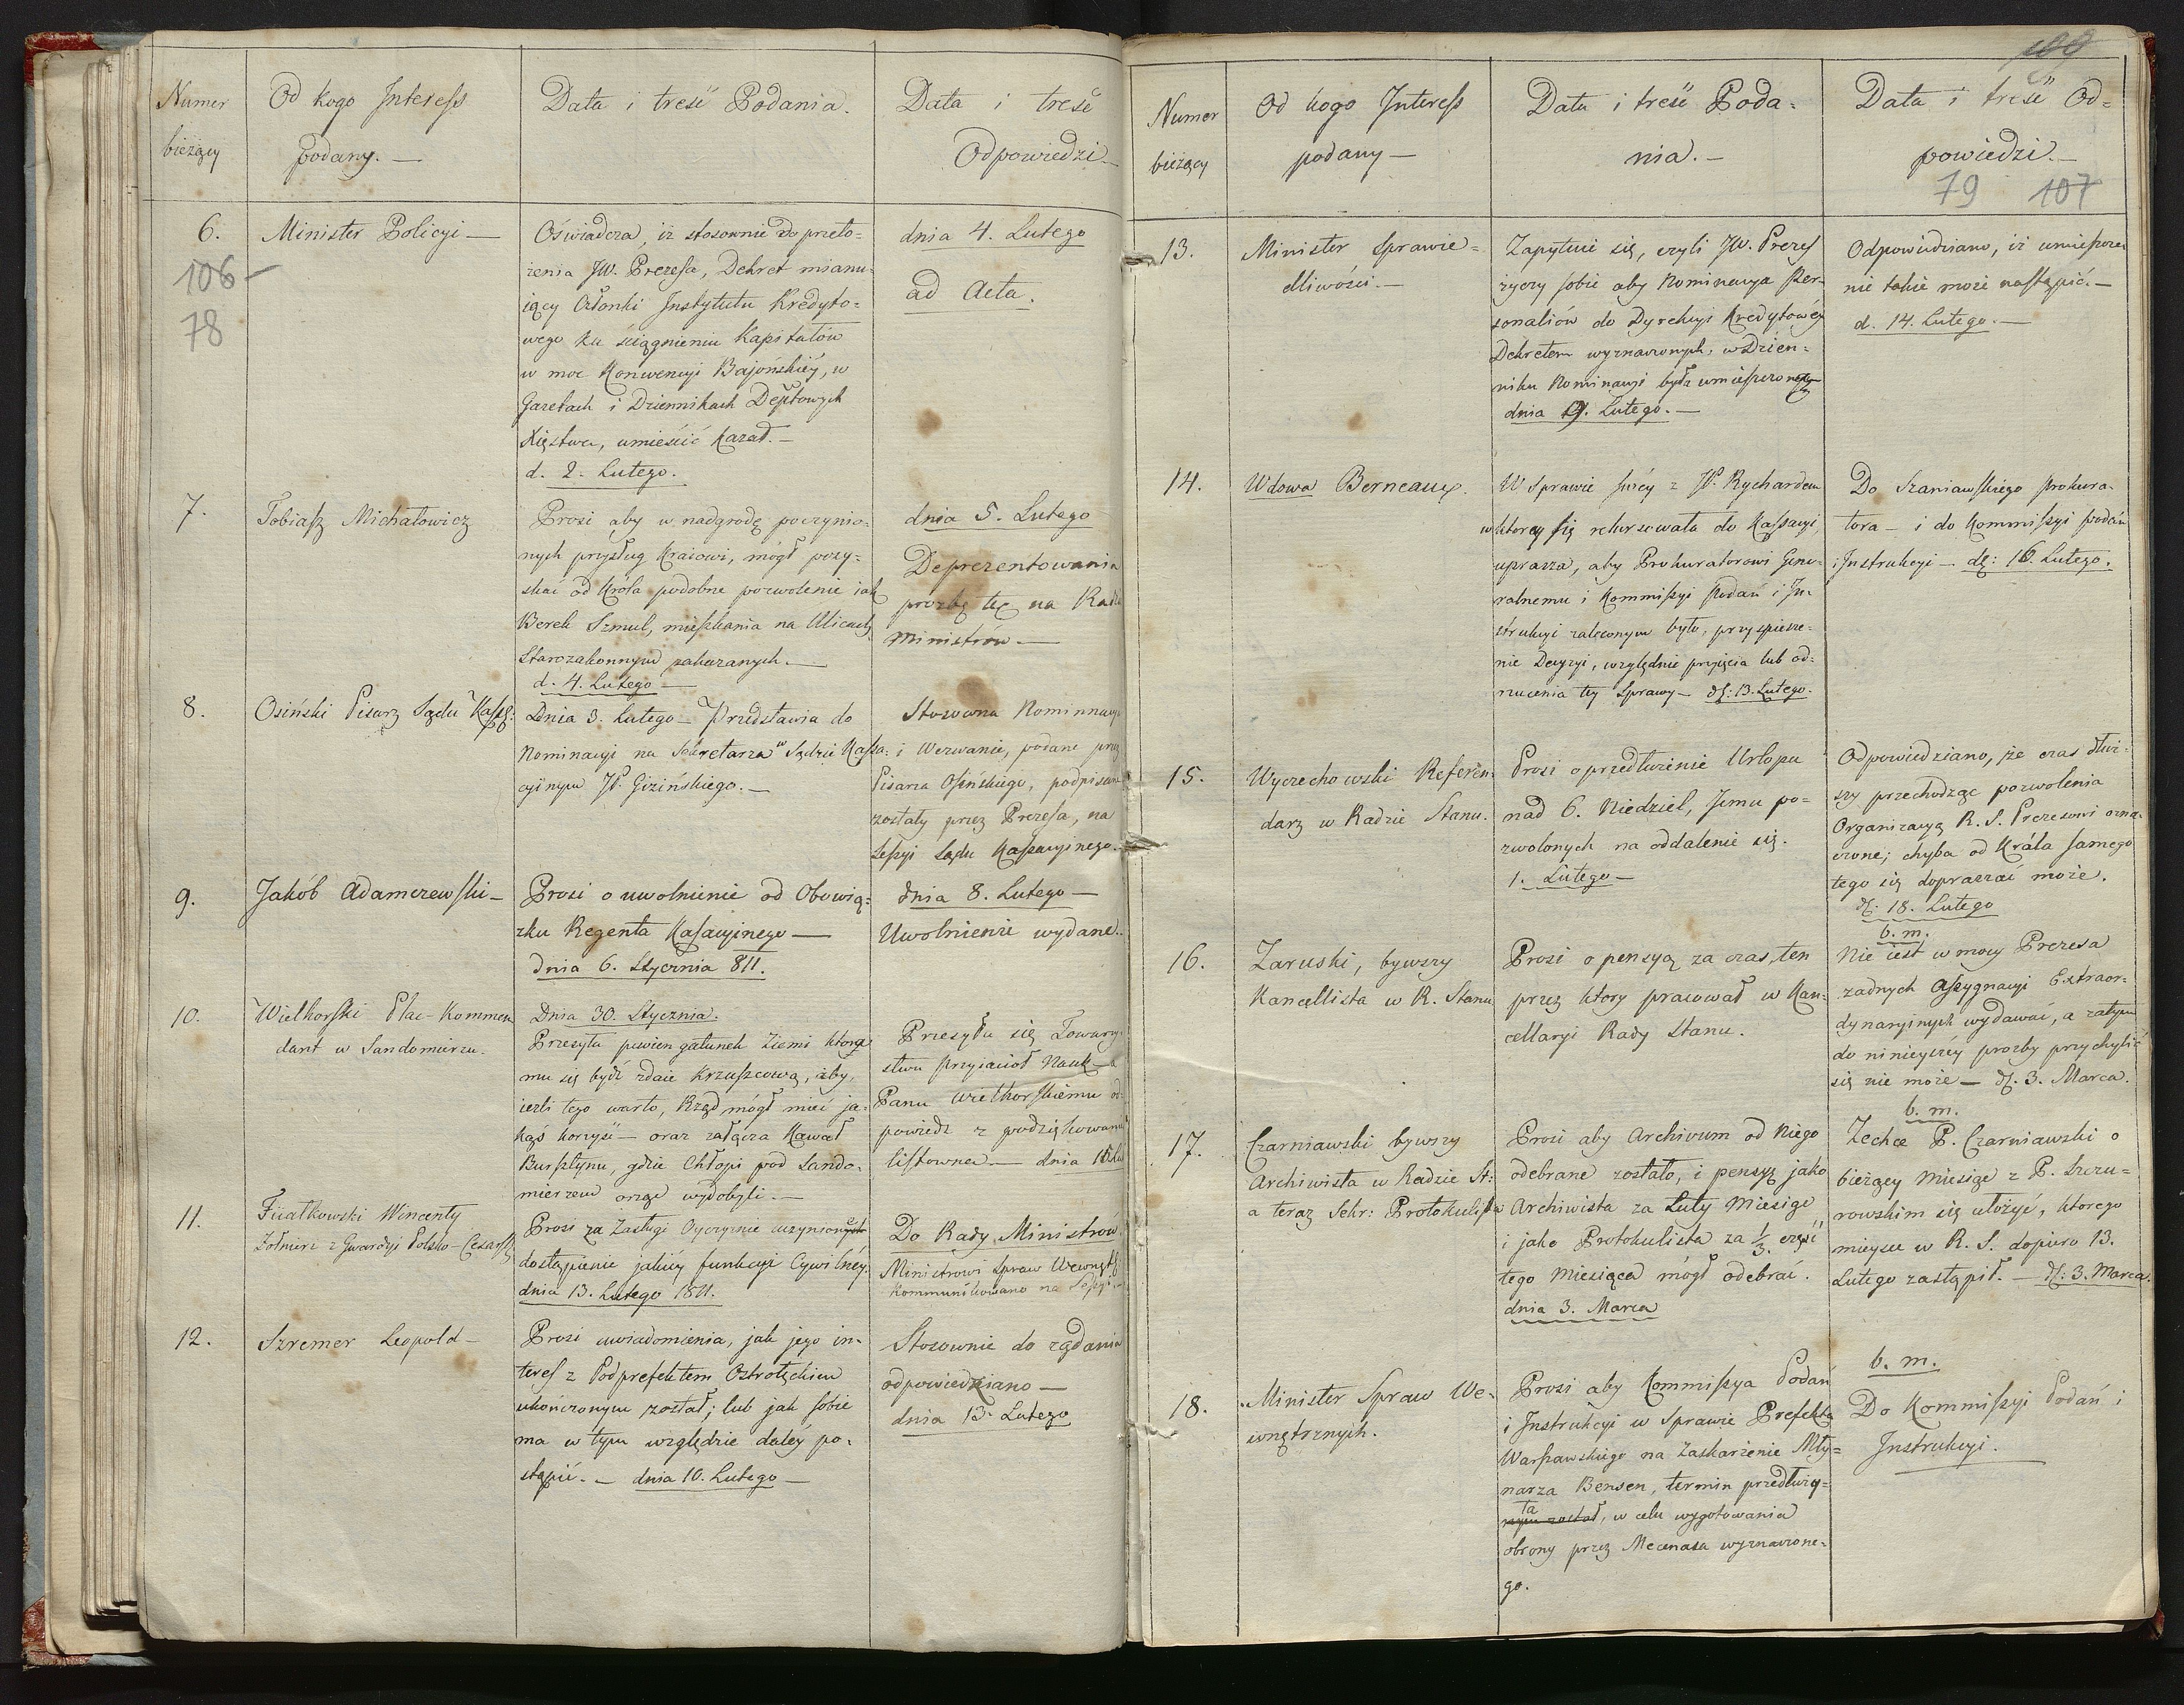 Numer
bieżący
Od kogo Interess
podany. —
Data i treść Podania.
Data i treść
Odpowiedzi —
6.
106 —
78
Minister Policyi —
Oświadcza, iż stosownie do przeło=
żenia JW. Prezesa, Dekret mianu=
iący Członki Instytutu Kredyto=
wego ku ściągnieniu Kapitałów
w moc Konwencyi Bajońskiéy, w
Gazetach i Dziennikach Depttowych
Xięstwa, umieścić kazał. —
d. 2. Lutego.
dnia 4. Lutego
ad Acta.
7.
Tobiasz Michałowicz
Prosi aby w nadgrodę poczynio=
nych przysług Kraiowi, mógł pozy=
skać od Króla podobne pozwolenie iak
Berek Szmul, mieszkania na Ulicach
Starozakonnym zakazanych. —
d. 4. Lutego —
dnia 5. Lutego
Deprezentowania
prozbę tę na Radzie
Ministrów —
8.
Osiński Pisarz Sądu Kassą:
Dnia 3. Lutego — Przedstawia do
Nominacyi na Sekretarza w Sądzie Kassa:
cyinym JP. Gizińskiego. —
Stosowna Nominnacya
i Wezwanie, podane przez
Pisarza Osińskiego, podpisane
zostały przez Prezesa, na
Sessyi Sądu Kassacyinego.
9.
Jakób Adamczewski —
Prosi o uwolnienie od Obowią=
zku Regenta Kasacyinego —
dnia 6. Stycznia 811.
dnia 8. Lutego —
Uwolnienie wydane.
10.
Wielhorski Plac-Kommen
dant w Sandomierzu.
Dnia 30. Stycznia.
Przesyła pewien gatunek Ziemi która
mu się bydź zdaie Kruszcową, ażby,
ieżli tego warto, Rząd mógł mieć ja=
kąś korzyść — oraz załącza Kawał
Bursztynu, gdzie Chłopi pod Sando=
mierzem orząc wydobyli. —
Przesyła się Towarzy
stwu Przyiaciół Nauk — a
Panu Wielhorskiemu od
powiedz z podziękowaniem
listowna — dnia 15 Lut
11.
Fiałkowski Wincenty
Żołnierz z Gwardyi Polsko-Cesarsk
Prosi za Zasługi Oyczyznie uczynione
dostąpienie jakiéy funkcyi Cywilnéy.
dnia 13. Lutego 1811.
Do Rady Ministrów.
Ministrowi Spraw Wewnątrz
Kommunikowano na Sessyi
12.
Szremer Leopold —
Prosi uwiadomienia, jak jego in=
teres z Podprefektem Ostrołęckim
ukończonym został; lub jak sobie
ma w tym względzie daléy po=
stąpić. — dnia 10. Lutego —
Stosownie do rządania
odpowiedziano —
dnia 13. Lutego
109
Numer
bieżący
Od kogo Interess
podany —
Data i treść Poda=
nia. —
Data i treść Od=
powiedzi. —
79 107
13.
Minister Sprawie=
dliwości. —
Zapytuie się, czyli JW. Prezes
życzy sobie aby Nominacya Per=
sonaliów do Dyrekcyi Kredytowéy
Dekretem wyznaczonych, w Dzien=
niku Nominacyi była umieszczona
dnia 9. Lutego. —
Odpowiedziano, iż umieszcze
nie takie może nastąpić. —
d. 14. Lutego. —
14.
Wdowa Berneaux.
W Sprawie swéy z JP. Rychardem
w którey się rekursowała do Kassacyi,
uprasza, aby Prokuratorowi Gene=
ralnemu i Kommissyi Podań i In=
strukcyi zaleconym było, przyspiesze=
nie Decyzyi, względnie przyięcia lub od=
rzucenia tey Sprawy — dd: 13. Lutego.
Do Szaniawskiego Prokura=
tora — i do Kommissyi podań
i Instrukcyi — dd: 16. Lutego.
15.
Wyczechowski Referen=
darz w Radzie Stanu.
Prosi o przedłużenie Urlopu
nad 6. Niedziel, Jemu po=
zwolonych na oddalenie się.
1. Lutego —
Odpowiedziano, że czas dłuż=
szy przechodząc pozwolenia
Organizacyą R. S. Prezesowi ozna=
czone; chyba od Króla samego
tego się dopraszać może.
dd: 18. Lutego
16.
Zaruski, bywszy
Kancellista w R. Stanu
Prosi o pensyą za czas, ten
przez który pracował w Kan=
cellaryi Rady Stanu.
b. m.
Nie iest w mocy Prezesa
żadnych Assygnacyi Extraor=
dynaryinych wydawać, a zatym
do ninieyszéy prozby przychylić
się nie może — dd. 3. Marca.
17.
Czarniawski bywszy
Archiwista w Radzie St:
a teraz Sekr: Protokulista
Prosi aby Archivum od Niego
odebrane zostało, i pensyą jako
Archiwista za Luty Miesiąc
i jako Protokulista za 1/3. część
tego Miesiąca mógł odebrać.
dnia 3. Marca
b. m.
Zechce P. Czarniawski o
bieżący Miesiąc z P. Szczu=
rowskim się ułożyć, którego
mieysce w R. S. dopiero 13.
Lutego zastąpił. — dd: 3. Marca.
18.
Minister Spraw We=
wnętrznych.
Prosi aby Kommissya Podań
i Instrukcyi w Sprawie Prefekta
Warszawskiego na Zaskarżenie Mły=
narza Bensen, termin przedłuży=
ła, w celu wygotowania
obrony przez Mecenasa wyznaczone=
go.
b. m.
Do Kommissyi Podań i
Instrukcyi.